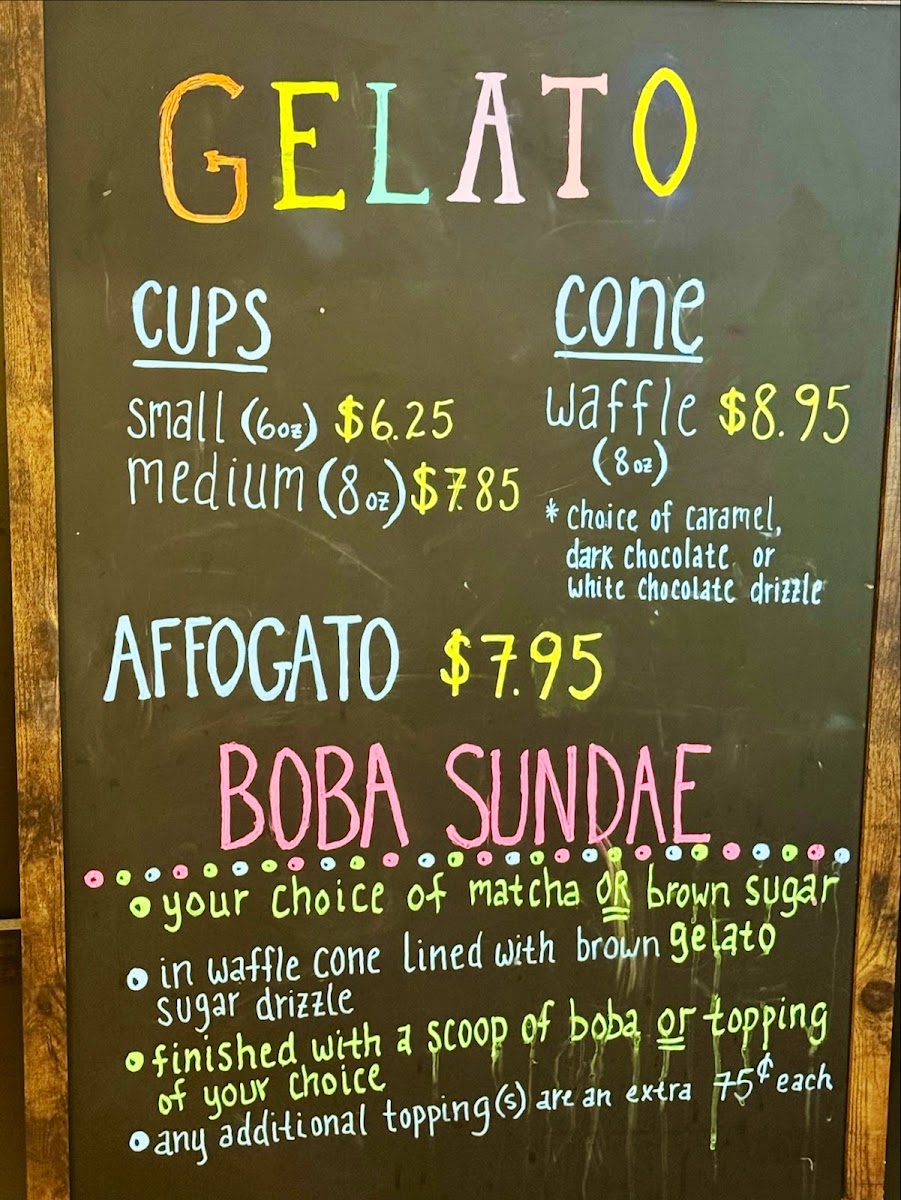 GELATO
CUPS
small (6oz) $6.25
medium (8oz) $7.85
cone
waffle $8.95
(8oz)
* choice of caramel,
dark chocolate or
white chocolate drizzle
AFFOGATO $7.95
BOBA SUNDAE
• your choice of matcha OR brown sugar
gelato
• in waffle cone lined with brown
sugar drizzle
• finished with a scoop of boba or topping
of your choice
• any additional topping(s) are an extra 75¢ each